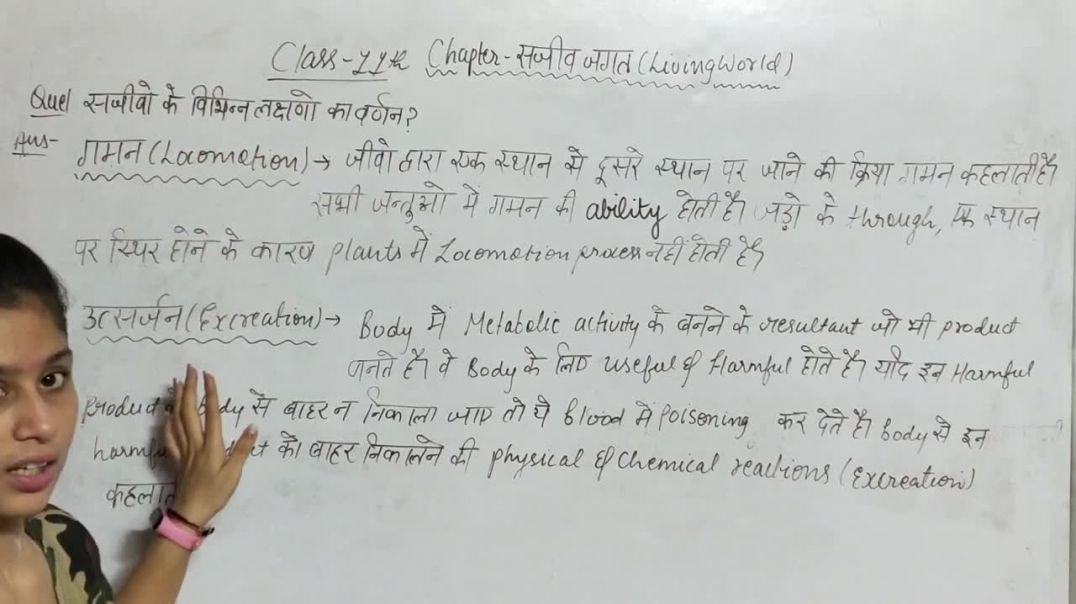 Class-11th Chapter-सजीव जगत (Living World)
Que1 सजीवो के विभिन्न लक्षणो का वर्णन?
Ans- गमन (Locomotion) → जीवो द्वारा एक स्थान से दूसरे स्थान पर जाने की क्रिया गमन कहलाती है।
सभी जन्तुओ में गमन की ability होती है। जड़ो के through, एक स्थान
पर स्थिर होने के कारण plants में Locomotion process नहीं होती है।
उत्सर्जन (Excreation) → Body में Metabolic activity के बनने के resultant जो भी product
बनते है। वे Body के लिए useful & Harmful होते है। यदि इन Harmful
Product Body से बाहर न निकाला जाए तो ये Blood में Poisoning कर देते है। Body से इन
को बाहर निकालने की physical & Chemical reactions (Excreation)